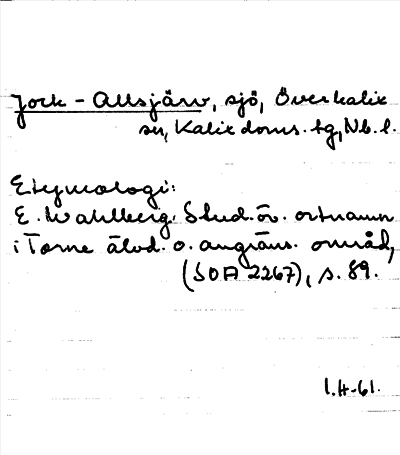 Jock-Allsjärv, sjö, Överkalix
sn, Kalix doms. tg, Nb. l.
Etymologi:
E. Wahlberg. Stud. öv. ortnamn
i Torne älvd. o. angräns. områd,
(SOA 2267), s. 89.
I.H-61.